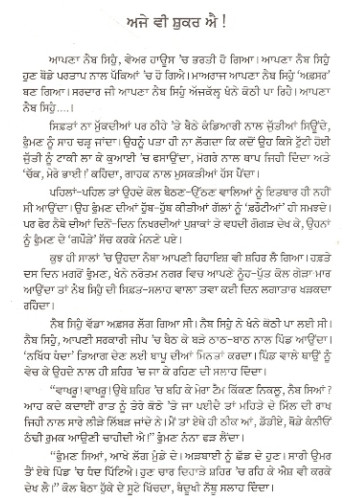 ਅਜੇ ਵੀ ਸ਼ੁਕਰ ਐ !
ਆਪਣਾ ਨੈਬ ਸਿਹੁੰ, ਵੇਅਰ ਹਾਊਸ 'ਚ ਭਰਤੀ ਹੋ ਗਿਆ। ਆਪਣਾ ਨੈਬ ਸਿਹੁੰ
ਹੁਣ ਥੋਡੇ ਪਰਤਾਪ ਨਾਲ ਪੱਕਿਆਂ 'ਚ ਹੋ ਗਿਐ। ਮਾਅਰਾਜ ਆਪਣਾ ਨੈਬ ਸਿਹੁੰ 'ਅਫ਼ਸਰ'
ਬਣ ਗਿਆ। ਸਰਦਾਰ ਜੀ ਆਪਣਾ ਨੈਬ ਸਿਹੁੰ ਅੱਜਕੱਲ੍ਹ ਖੰਨੇ ਕੋਠੀ ਪਾ ਰਿਹੈ। ਆਪਣਾ
ਨੈਬ ਸਿਹੁੰ....।
ਸਿਫ਼ਤਾਂ ਨਾ ਮੁੱਕਦੀਆਂ ਪਰ ਠੀਹੇ 'ਤੇ ਬੈਠੇ ਕੰਡਿਆਰੀ ਨਾਲ ਜੁੱਤੀਆਂ ਸਿਊਂਦੇ,
ਝੁੰਮਣ ਨੂੰ ਸਾਹ ਚੜ੍ਹ ਜਾਂਦਾ। ਉਹਨੂੰ ਪਤਾ ਹੀ ਨਾ ਲੱਗਦਾ ਕਿ ਕਦੋਂ ਉਹ ਕਿਸੇ ਟੁੱਟੀ ਹੋਈ
ਜੁੱਤੀ ਨੂੰ ਟਾਕੀ ਲਾ ਕੇ ਕੁਆਈ 'ਚ ਫਸਾਉਂਦਾ, ਮੱਗਰੇ ਨਾਲ ਥਾਪ ਜਿਹੀ ਦਿੰਦਾ ਅਤੇ
'ਚੱਕ, ਮੇਰੇ ਭਾਈ!' ਕਹਿੰਦਾ, ਗਾਹਕ ਨਾਲ ਮੁਸਕੜੀਆਂ ਹੱਸ ਪੈਂਦਾ।
ਪਹਿਲਾਂ-ਪਹਿਲ ਤਾਂ ਉਹਦੇ ਕੋਲ ਬੈਠਣ-ਉੱਠਣ ਵਾਲਿਆਂ ਨੂੰ ਇਤਬਾਰ ਹੀ ਨਹੀਂ
ਸੀ ਆਉਂਦਾ। ਉਹ ਝੁੰਮਣ ਦੀਆਂ ਹੁੱਬ-ਹੁੱਬ ਕੀਤੀਆਂ ਗੱਲਾਂ ਨੂੰ 'ਫ਼ਰੌਟੀਆਂ' ਹੀ ਸਮਝਦੇ।
ਪਰ ਫੇਰ ਨੈਬੇ ਦੀਆਂ ਦਿਨੋਂ-ਦਿਨ ਨਿਖਰਦੀਆਂ ਪੁਸ਼ਾਕਾਂ ਤੇ ਵਧਦੀ ਗੋਗੜ ਦੇਖ ਕੇ, ਉਹਨਾਂ
ਨੂੰ ਝੁੰਮਣ ਦੇ 'ਗਪੌੜੇ' ਸੱਚ ਕਰਕੇ ਮੰਨਣੇ ਪਏ।
ਕੁਝ ਹੀ ਸਾਲਾਂ 'ਚ ਉਹਦਾ ਨੈਬਾ ਆਪਣੀ ਰਿਹਾਇਸ਼ ਵੀ ਸ਼ਹਿਰ ਲੈ ਗਿਆ। ਹਫ਼ਤੇ
ਦਸ ਦਿਨ ਮਗਰੋਂ ਝੁੰਮਣ, ਖੰਨੇ ਨਰੋਤਮ ਨਗਰ ਵਿਚ ਆਪਣੇ ਨੂੰਹ-ਪੁੱਤ ਕੋਲ ਗੇੜਾ ਮਾਰ
ਆਉਂਦਾ ਤਾਂ ਨੈਬ ਸਿਹੁੰ ਦੀ ਸਿਫ਼ਤ-ਸਲਾਹ ਵਾਲਾ ਤਵਾ ਕਈ ਦਿਨ ਲਗਾਤਾਰ ਖੜਕਦਾ
ਰਹਿੰਦਾ।
ਨੈਬ ਸਿਹੁੰ ਵੱਡਾ ਅਫ਼ਸਰ ਲੱਗ ਗਿਆ ਸੀ। ਨੈਬ ਸਿਹੁੰ ਨੇ ਖੰਨੇ ਕੋਠੀ ਪਾ ਲਈ ਸੀ।
ਨੈਬ ਸਿਹੁੰ, ਆਪਣੀ ਸਰਕਾਰੀ ਜੀਪ 'ਚ ਬੈਠ ਕੇ ਬੜੇ ਠਾਠ-ਬਾਠ ਨਾਲ ਪਿੰਡ ਆਉਂਦਾ।
'ਨਖਿੱਧ ਧੰਦਾ' ਤਿਆਗ ਦੇਣ ਲਈ ਬਾਪੂ ਦੀਆਂ ਮਿਨਤਾਂ ਕਰਦਾ। ਪਿੰਡ ਵਾਲੇ ਥਾਉਂ ਨੂੰ
ਵੇਚ ਕੇ ਉਹਦੇ ਨਾਲ ਹੀ ਸ਼ਹਿਰ 'ਚ ਜਾ ਕੇ ਰਹਿਣ ਦੀ ਸਲਾਹ ਦਿੰਦਾ।
"ਵਾਖਰੂ! ਵਾਖਰੂ! ਉਥੇ ਸ਼ਹਿਰ 'ਚ ਬਹਿ ਕੇ ਮੇਰਾ ਟੈਮ ਕਿੱਕਣ ਨਿਕਲੂ, ਨੈਬ ਸਿਆਂ ?
ਆਹ ਕਦੇ ਕਦਾਈਂ ਰਾਤ ਨੂੰ ਤੇਰੇ ਕੋਠੇ 'ਤੇ ਜਾ ਪਈਦੈ ਤਾਂ ਮਹਿਤੇ ਦੇ ਮਿੱਲ ਦੀ ਰਾਖ
ਜਿਹੀ ਨਾਲ ਸਾਰੇ ਲੀੜੇ ਲਿੱਬੜ ਜਾਂਦੇ ਨੇ। ਮੈਂ ਤਾਂ ਏਥੇ ਹੀ ਠੀਕ ਆਂ, ਡੌਡੀਏ, ਥੋਡੇ ਕੰਨੀਓਂ
ਠੰਢੀ ਰੁਮਕ ਆਉਣੀ ਚਾਹੀਦੀ ਐ।!" ਝੁੰਮਣ ਨੰਨਾ ਫੜ ਲੈਂਦਾ।
"ਝੁੰਮਣ ਸਿਆਂ, ਆਖੇ ਲੱਗ ਮੁੰਡੇ ਦੇ। ਅੜਬਾਈ ਨੂੰ ਛੱਡ ਦੇ ਹੁਣ। ਸਾਰੀ ਉਮਰ
ਤੈਂ ਏਥੇ ਪਿੰਡ 'ਚ ਧੰਦ ਪਿੱਟਿਐ। ਹੁਣ ਚਾਰ ਦਿਹਾੜੇ ਸ਼ਹਿਰ 'ਚ ਰਹਿ ਕੇ ਐਸ਼ ਵੀ ਕਰਕੇ
ਦੇਖ ਲੈ।" ਕੋਲ ਬੈਠਾ ਹੁੱਕੇ ਦੇ ਸੂਟੇ ਖਿੱਚਦਾ, ਬੰਦੂਖੀ ਨੱਥੂ ਸਲਾਹ ਦਿੰਦਾ।